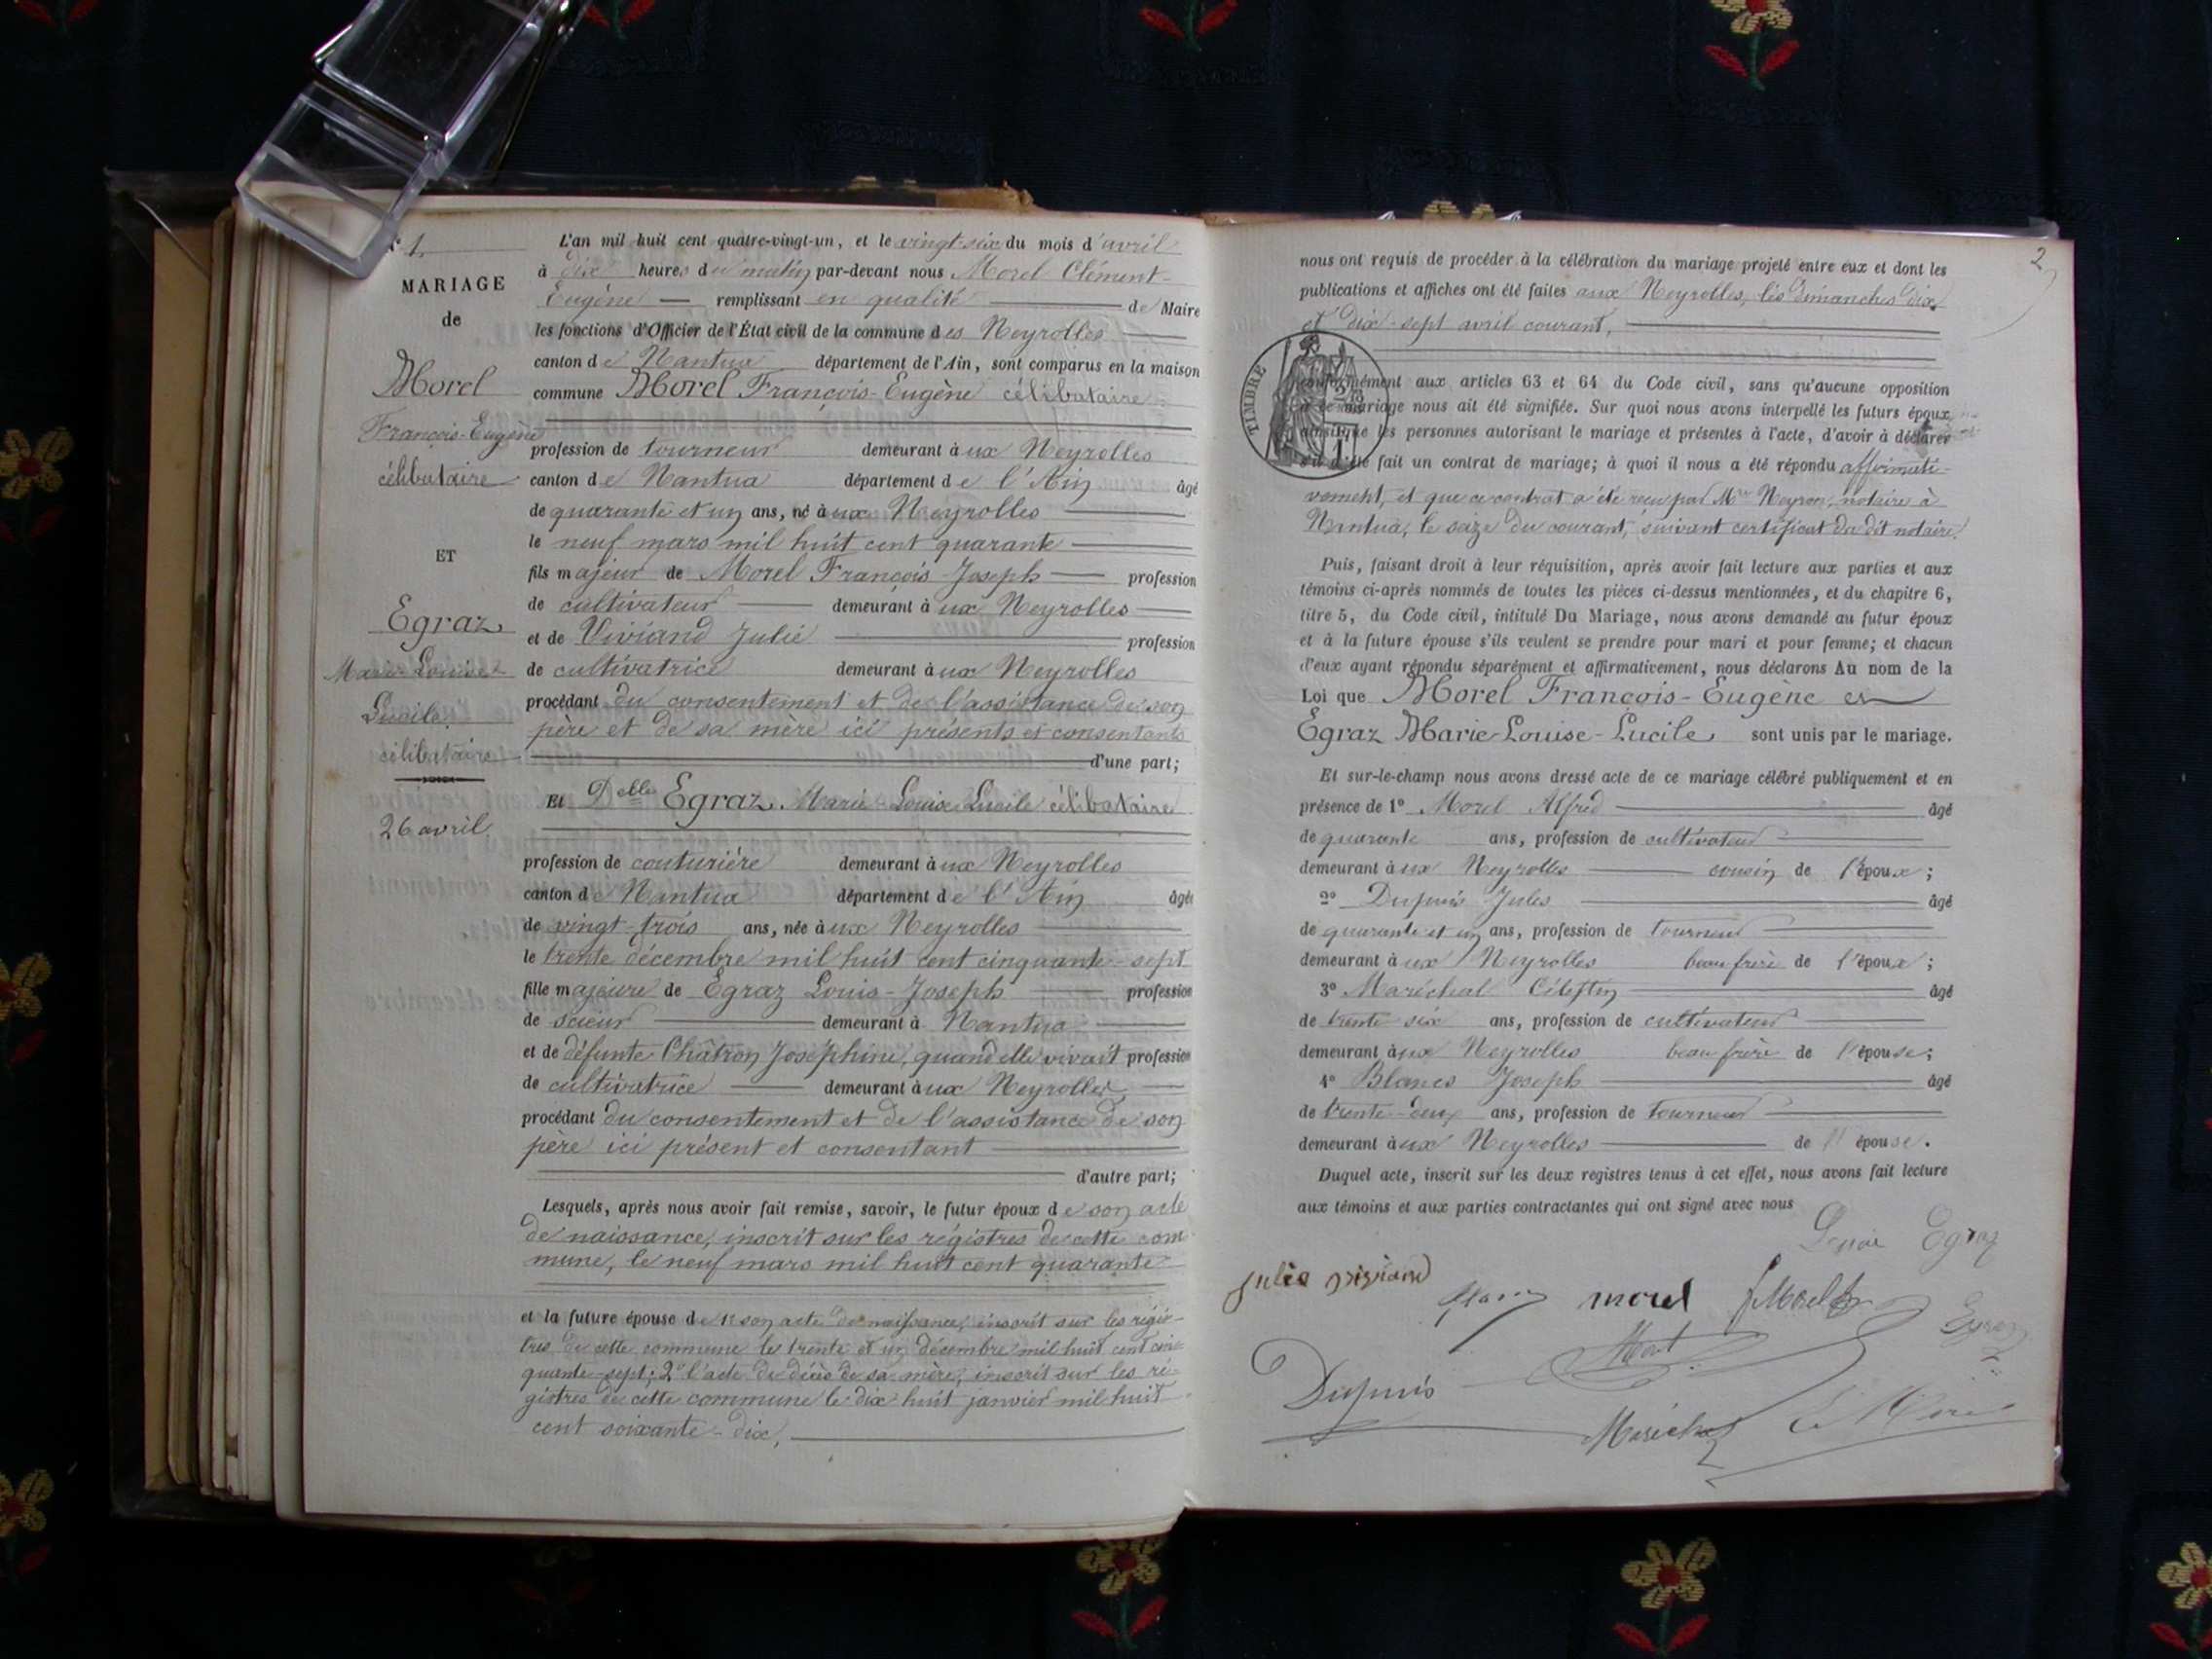 N° 1.
MARIAGE
de
Morel
François-Eugène
célibataire
ET
Egraz
Marie-Louise-
Lucile
célibataire
26 avril.
L'an mil huit cent quatre-vingt-un, et le vingt-six du mois d'avril
à dix heures du matin par-devant nous Morel Clément-
Eugène — remplissant en qualité — de Maire
les fonctions d'Officier de l'État civil de la commune des Neyrolles
canton de Nantua département de l'Ain, sont comparus en la maison
commune Morel François-Eugène célibataire
profession de tourneur demeurant à ux Neyrolles
canton de Nantua département de l'Ain âgé
de quarante et un ans, né à ux Neyrolles
le neuf mars mil huit cent quarante
fils majeur de Morel François-Joseph — profession
de cultivateur — demeurant à ux Neyrolles
et de Viviand Julie — profession
de cultivatrice demeurant à ux Neyrolles
procédant du consentement et de l'assistance de son
père et de sa mère ici présents et consentants
d'une part;
Et Delle Egraz Marie-Louise-Lucile célibataire
profession de couturière demeurant à ux Neyrolles
canton de Nantua département de l'Ain âgée
de vingt-trois ans, née à ux Neyrolles
le trente décembre mil huit cent cinquante-sept
fille majeure de Egraz Louis-Joseph — profession
de scieur — demeurant à Nantua
et de défunte Châtron Joséphine, quand elle vivait profession
de cultivatrice — demeurant à ux Neyrolles
procédant du consentement et de l'assistance de son
père ici présent et consentant
d'autre part;
Lesquels, après nous avoir fait remise, savoir, le futur époux de son acte
de naissance, inscrit sur les régistres de cette com
mune, le neuf mars mil huit cent quarante
et la future épouse de 1° son acte de naissance, inscrit sur les régis-
tres de cette commune le trente et un décembre mil huit cent cin-
quante-sept; 2° l'acte de décès de sa mère, inscrit sur les ré-
gistres de cette commune le dix huit janvier mil huit
cent soixante-dix,
2
nous ont requis de procéder à la célébration du mariage projeté entre eux et dont les
publications et affiches ont été faites aux Neyrolles, les dimanches dix
et dix-sept avril courant,
TIMBRE
conformément aux articles 63 et 64 du Code civil, sans qu'aucune opposition
à ce mariage nous ait été signifiée. Sur quoi nous avons interpellé les futurs époux
ainsi que les personnes autorisant le mariage et présentes à l'acte, d'avoir à déclarer
s'il a été fait un contrat de mariage; à quoi il nous a été répondu affirmati-
vement, et que ce contrat a été reçu par Me Neyron, notaire à
Nantua, le seize du courant, suivant certificat du dit notaire.
Puis, faisant droit à leur réquisition, après avoir fait lecture aux parties et aux
témoins ci-après nommés de toutes les pièces ci-dessus mentionnées, et du chapitre 6,
titre 5, du Code civil, intitulé Du Mariage, nous avons demandé au futur époux
et à la future épouse s'ils veulent se prendre pour mari et pour femme; et chacun
d'eux ayant répondu séparément et affirmativement, nous déclarons Au nom de la
Loi que Morel François-Eugène et
Egraz Marie-Louise-Lucile sont unis par le mariage.
Et sur-le-champ nous avons dressé acte de ce mariage célébré publiquement et en
présence de 1° Morel Alfred — âgé
de quarante ans, profession de cultivateur
demeurant à ux Neyrolles — cousin de l'époux;
2° Dupuis Jules — âgé
de quarante et un ans, profession de tourneur
demeurant à ux Neyrolles beau frère de l'époux;
3° Maréchal Célestin — âgé
de trente six ans, profession de cultivateur
demeurant à ux Neyrolles beau frère de l'épouse;
4° Blancs Joseph — âgé
de trente-deux ans, profession de tourneur
demeurant à ux Neyrolles — de l'épouse.
Duquel acte, inscrit sur les deux registres tenus à cet effet, nous avons fait lecture
aux témoins et aux parties contractantes qui ont signé avec nous
Egraz
julie viviand
morel
Egraz
Dupuis
Maréchal